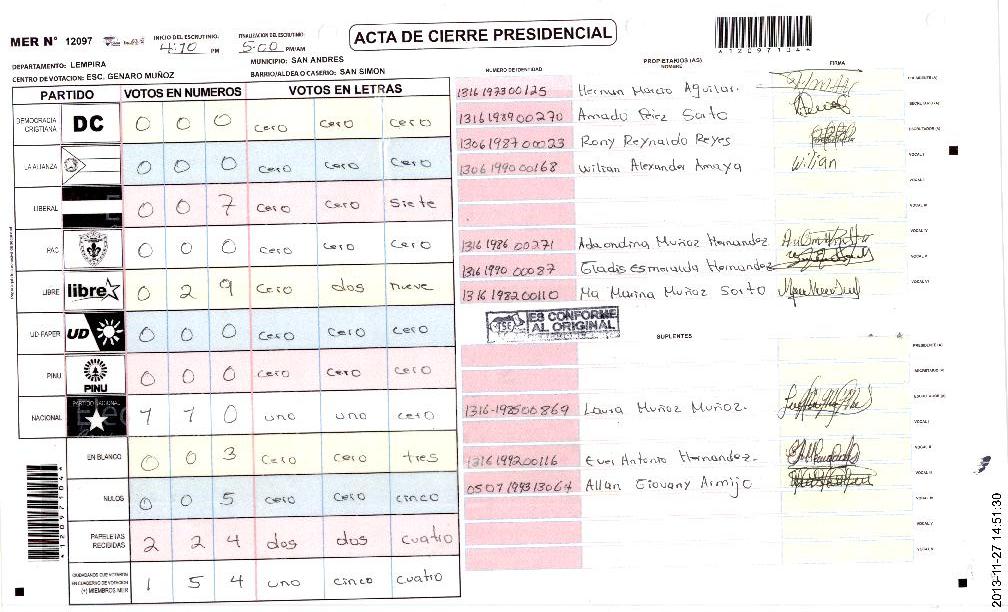 MER N° 12097
INICIO DEL ESCRUTINIO: 4:10 PM
FINALIZACION DEL ESCRUTINIO: 5:00 PM/AM
ACTA DE CIERRE PRESIDENCIAL
A12097104A
DEPARTAMENTO: LEMPIRA
MUNICIPIO: SAN ANDRES
CENTRO DE VOTACION: ESC. GENARO MUÑOZ
BARRIO/ALDEA O CASERIO: SAN SIMON
PARTIDO VOTOS EN NUMEROS VOTOS EN LETRAS
DEMOCRACIA CRISTIANA DC 0 0 0 cero cero cero
LA ALIANZA 0 0 0 cero cero cero
LIBERAL 0 0 7 cero cero siete
PAC 0 0 0 cero cero cero
LIBRE libre 0 2 9 cero dos nueve
UD-FAPER UD 0 0 0 cero cero cero
PINU PINU 0 0 0 cero cero cero
NACIONAL PARTIDO NACIONAL 1 1 0 uno uno cero
EN BLANCO 0 0 3 cero cero tres
NULOS 0 0 5 cero cero cinco
PAPELETAS RECIBIDAS 2 2 4 dos dos cuatro
CIUDADANOS QUE VOTARON EN CUADERNO DE VOTACION (+) MIEMBROS MER 1 5 4 uno cinco cuatro
NUMERO DE IDENTIDAD PROPIETARIOS (AS) NOMBRE FIRMA
1316197300125 Hernan Marcio Aguilar. PRESIDENTE (A)
1316198900270 Amado Perez Sorto SECRETARIO (A)
1306198700023 Rony Reynaldo Reyes ESCRUTADOR (A)
1306199000168 Wilian Alexander Amaya Wilian VOCAL I
1316 1986 00271 Adaondina Muñoz Hernandez
1316 1990 00087 Gladis Esmeralda Hernandez
1316 1982 00110 Ma Marina Muñoz Sorto
TSE ES CONFORME AL ORIGINAL
SUPLENTES
PRESIDENTE (A)
SECRETARIO (A)
1316-198500869 Laura Muñoz Muñoz. ESCRUTADOR (A)
VOCAL I
1316199200116 Ever Antonio Hernandez.
0507199313064 Allan Giovany Armijo
A12097104A
2013-11-27 14:51:30